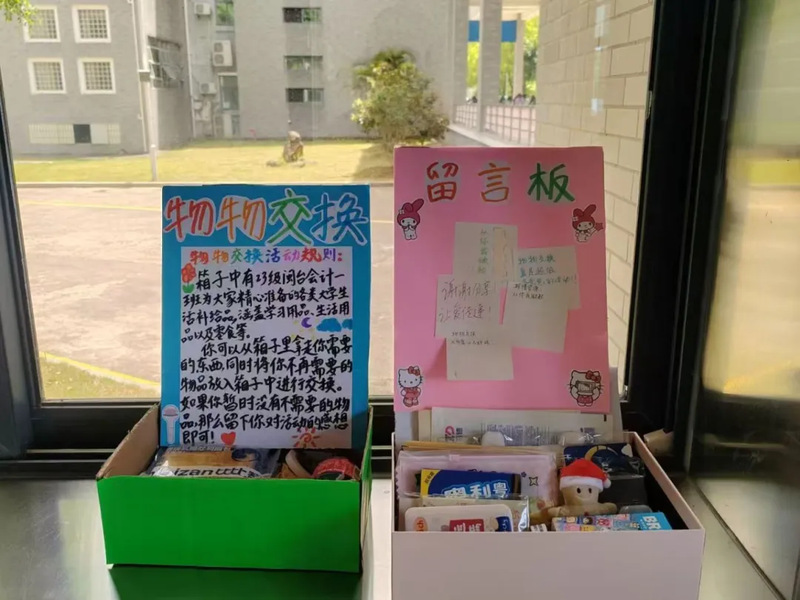 物物交换
物物交换活动规则:
箱子中有23级闽台会计一
班为大家精心准备的各类大学生
活补给品,涵盖学习用品、生活用
品以及零食等。
你可以从箱子里拿走你需要
的东西,同时将你不再需要的
物品放入箱子中进行交换。
如果你暂时没有不需要的物
品,那么留下你对活动的感想
即可!
留言板
谢谢分享
让爱传递!
物物交换
izan
奥利奥